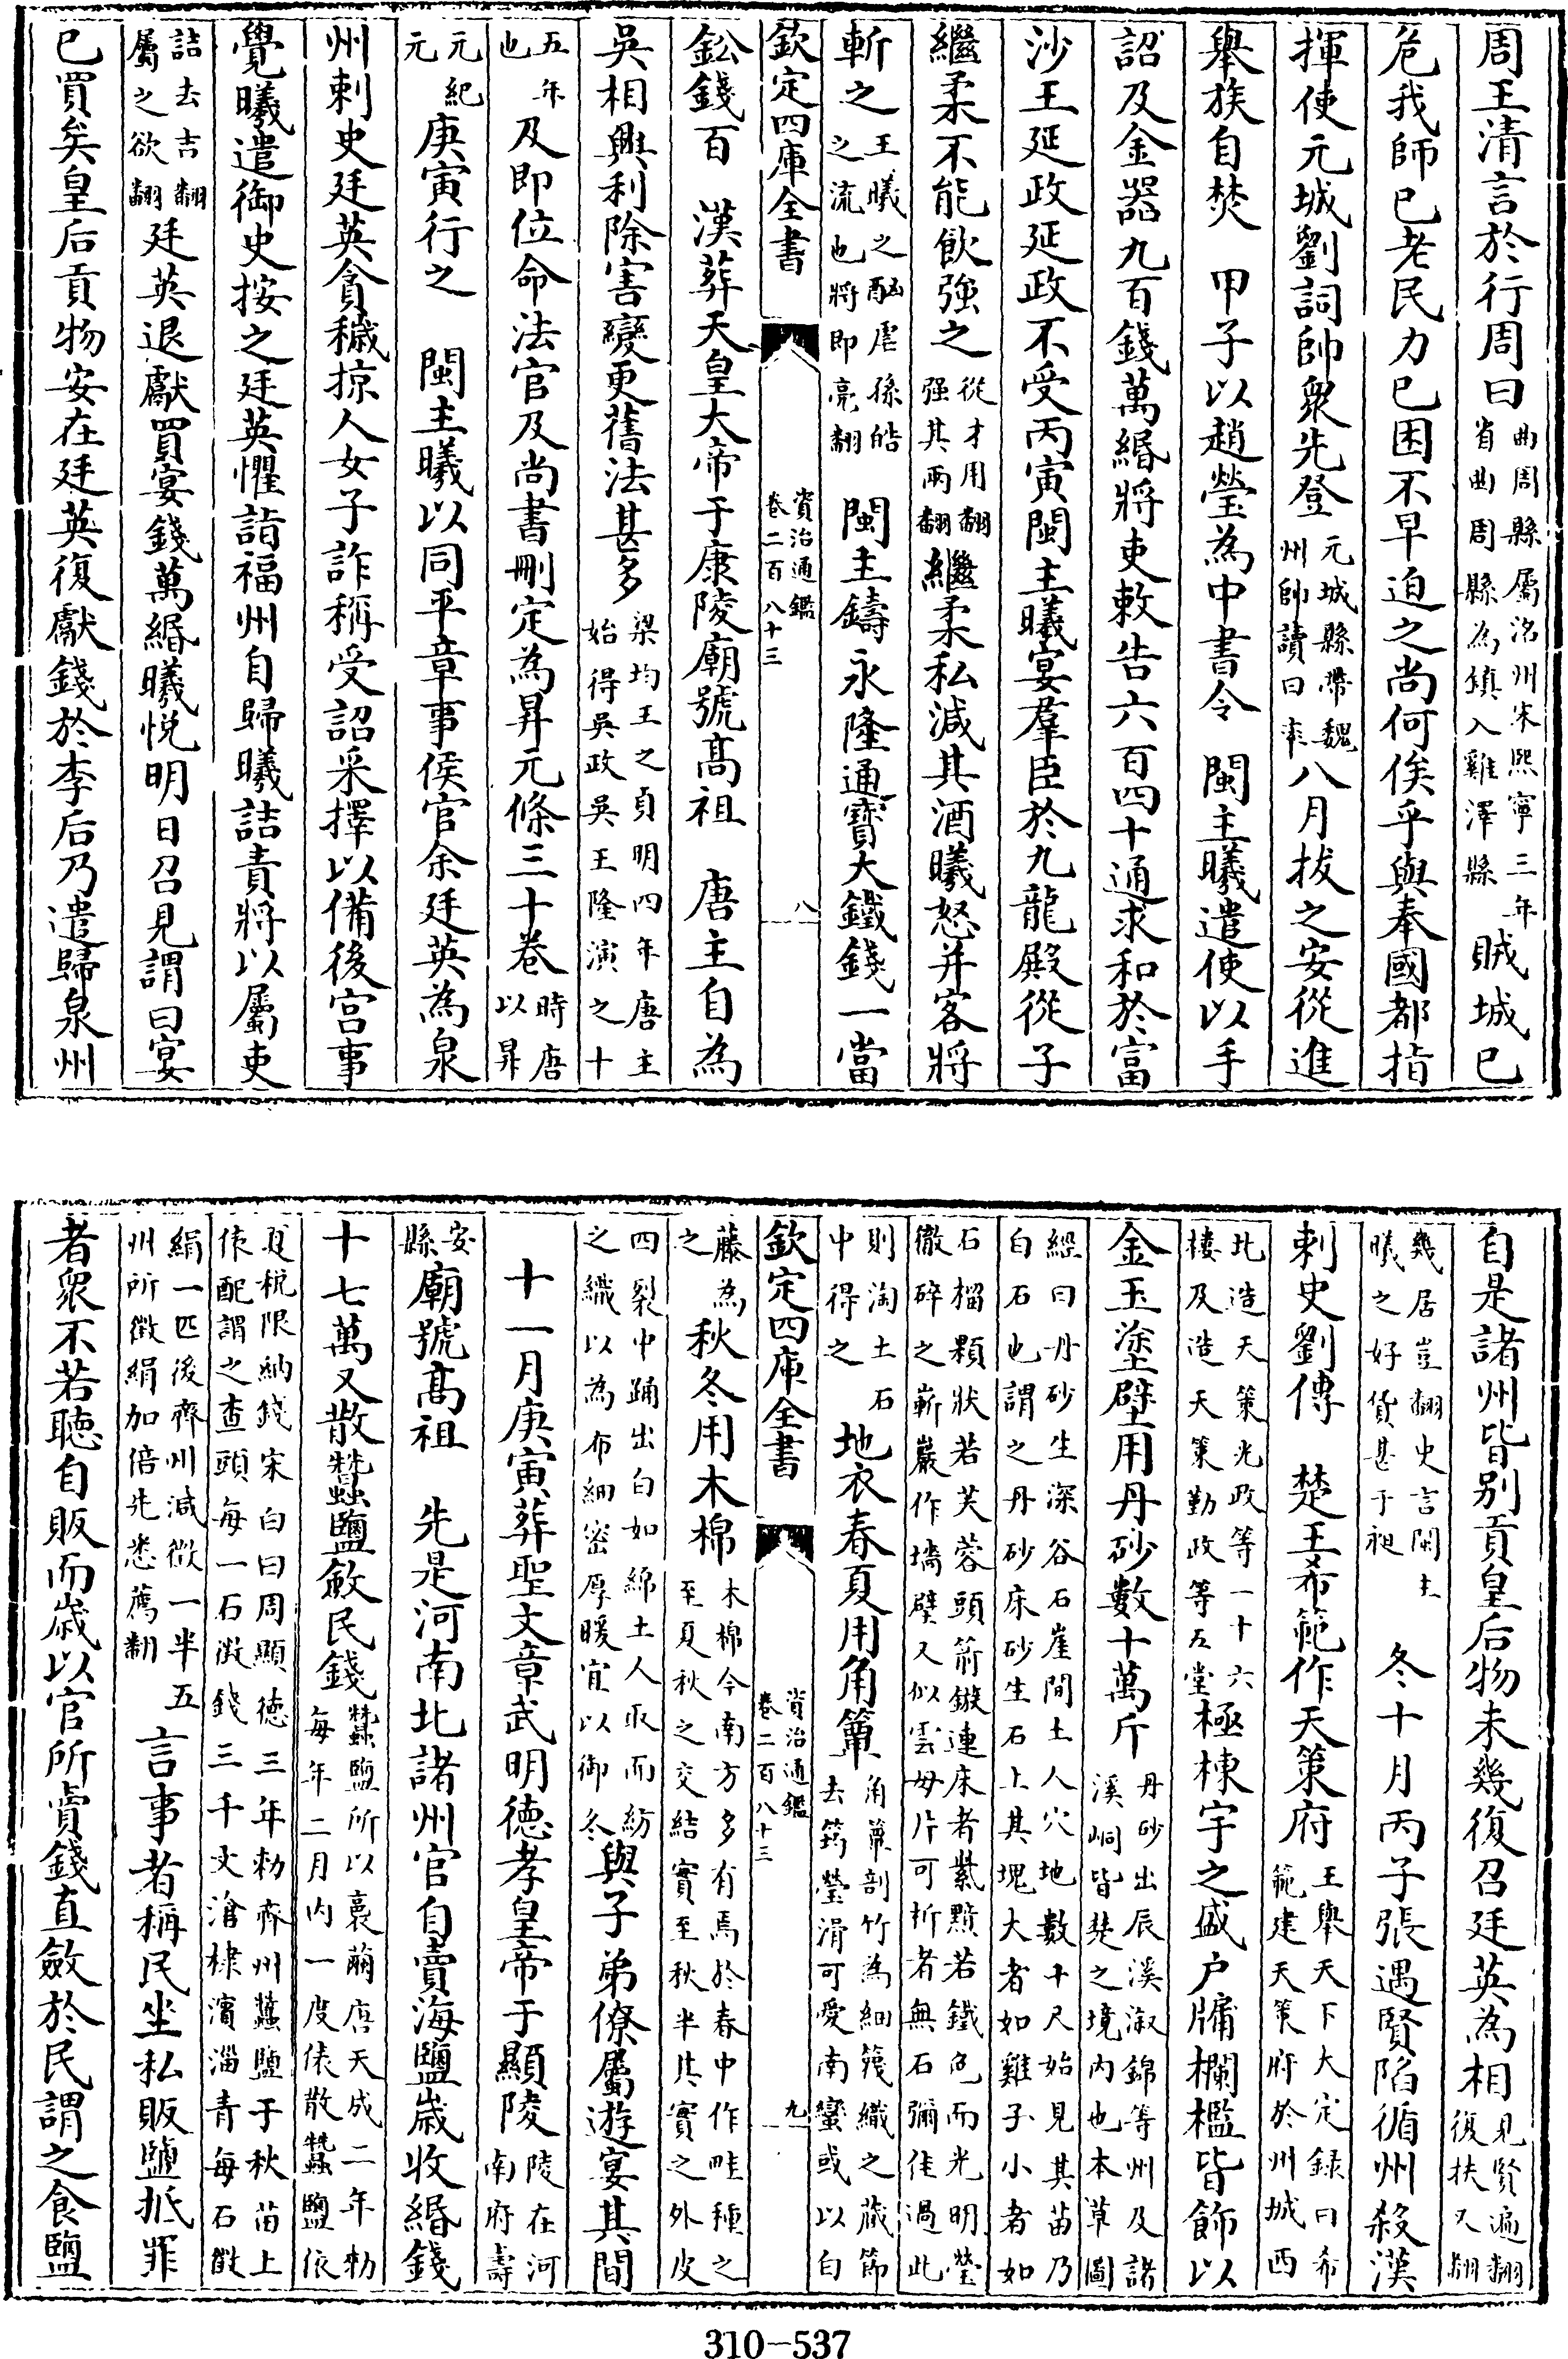 周王清言於行周曰曲周縣屬洺州宋熙寧三年省曲周縣為鎮入雞澤縣賊城已
危我師已老民力已困不早迫之尚何俟乎與奉國都指
揮使元城劉詞帥衆先登元城縣帶魏州帥讀曰率八月拔之安從進
舉族自焚　甲子以趙瑩為中書令　閩主曦遣使以手
詔及金器九百錢萬緡將吏敕告六百四十通求和於富
沙王延政延政不受丙寅閩主曦宴羣臣於九龍殿從子
繼柔不能飲強之從才用翻强其兩翻繼柔私減其酒曦怒并客將
斬之王曦之酗虐孫皓之流也將即亮翻　閩主鑄永隆通寶大鐵錢一當
欽定四庫全書　資治通鑑卷二百八十三　八
鈆錢百　漢葬天皇大帝于康陵廟號高祖　唐主自為
吳相興利除害變更舊法甚多梁均王之貞明四年唐主始得吳政吳王隆演之十
五年也及即位命法官及尚書刪定為昇元條三十卷時唐以昇
元紀元庚寅行之　閩主曦以同平章事侯官余廷英為泉
州刺史廷英貪穢掠人女子詐稱受詔采擇以備後宫事
覺曦遣御史按之廷英懼詣福州自歸曦詰責將以屬吏
詰去吉翻屬之欲翻廷英退獻買宴錢萬緡曦悅明日召見謂曰宴
已買矣皇后貢物安在廷英復獻錢於李后乃遣歸泉州
自是諸州皆别貢皇后物未幾復召廷英為相見賢遍翻復扶又翻
幾居豈翻史言閩主曦之好貨甚于昶　冬十月丙子張遇賢陷循州殺漢
刺史劉傳　楚王希範作天策府王舉天下大定録曰希範建天策府於州城西
北造天策光政等一十六樓及造天策勤政等五堂極棟宇之盛户牖欄檻皆飾以
金玉塗壁用丹砂數十萬斤丹砂出辰溪溆錦等州及諸溪峒皆楚之境内也本草圖
經曰丹砂生深谷石崖間土人穴地數十尺始見其苗乃白石也謂之丹砂床砂生石上其塊大者如雞子小者如
石榴顆狀若芙蓉頭箭鏃連床者紫黯若鐵色而光明瑩徹碎之嶄巖作墻壁又似雲母片可析者無石彌佳過此
則淘土石中得之　地衣春夏用角簟角簟剖竹為細篾織之藏節去筠瑩滑可愛南蠻或以白
欽定四庫全書　資治通鑑卷二百八十三　九
藤為之秋冬用木棉木棉今南方多有焉於春中作畦種之至夏秋之交結實至秋半其實之外皮
四裂中踊出白如綿土人取而紡之織以為布細密厚暖宜以御冬與子弟僚屬遊宴其間
十一月庚寅葬聖文章武明德孝皇帝于顯陵陵在河南府壽
安縣廟號高祖　先是河南北諸州官自賣海鹽歲收緡錢
十七萬又散蠶鹽斂民錢蠶鹽所以裛繭唐天成二年勑每年二月内一度俵散蠶鹽依
夏稅限納錢宋白曰周顯德三年勑齊州蠶鹽于秋苗上俵配謂之查頭每一石徵錢三千文滄棣濱淄青每石徵
絹一匹後齊州減徵一半五州所徵絹加倍先悉薦翻　言事者稱民坐私販鹽抵罪
者衆不若聽自販而歲以官所賣錢直斂於民謂之食鹽
310-537